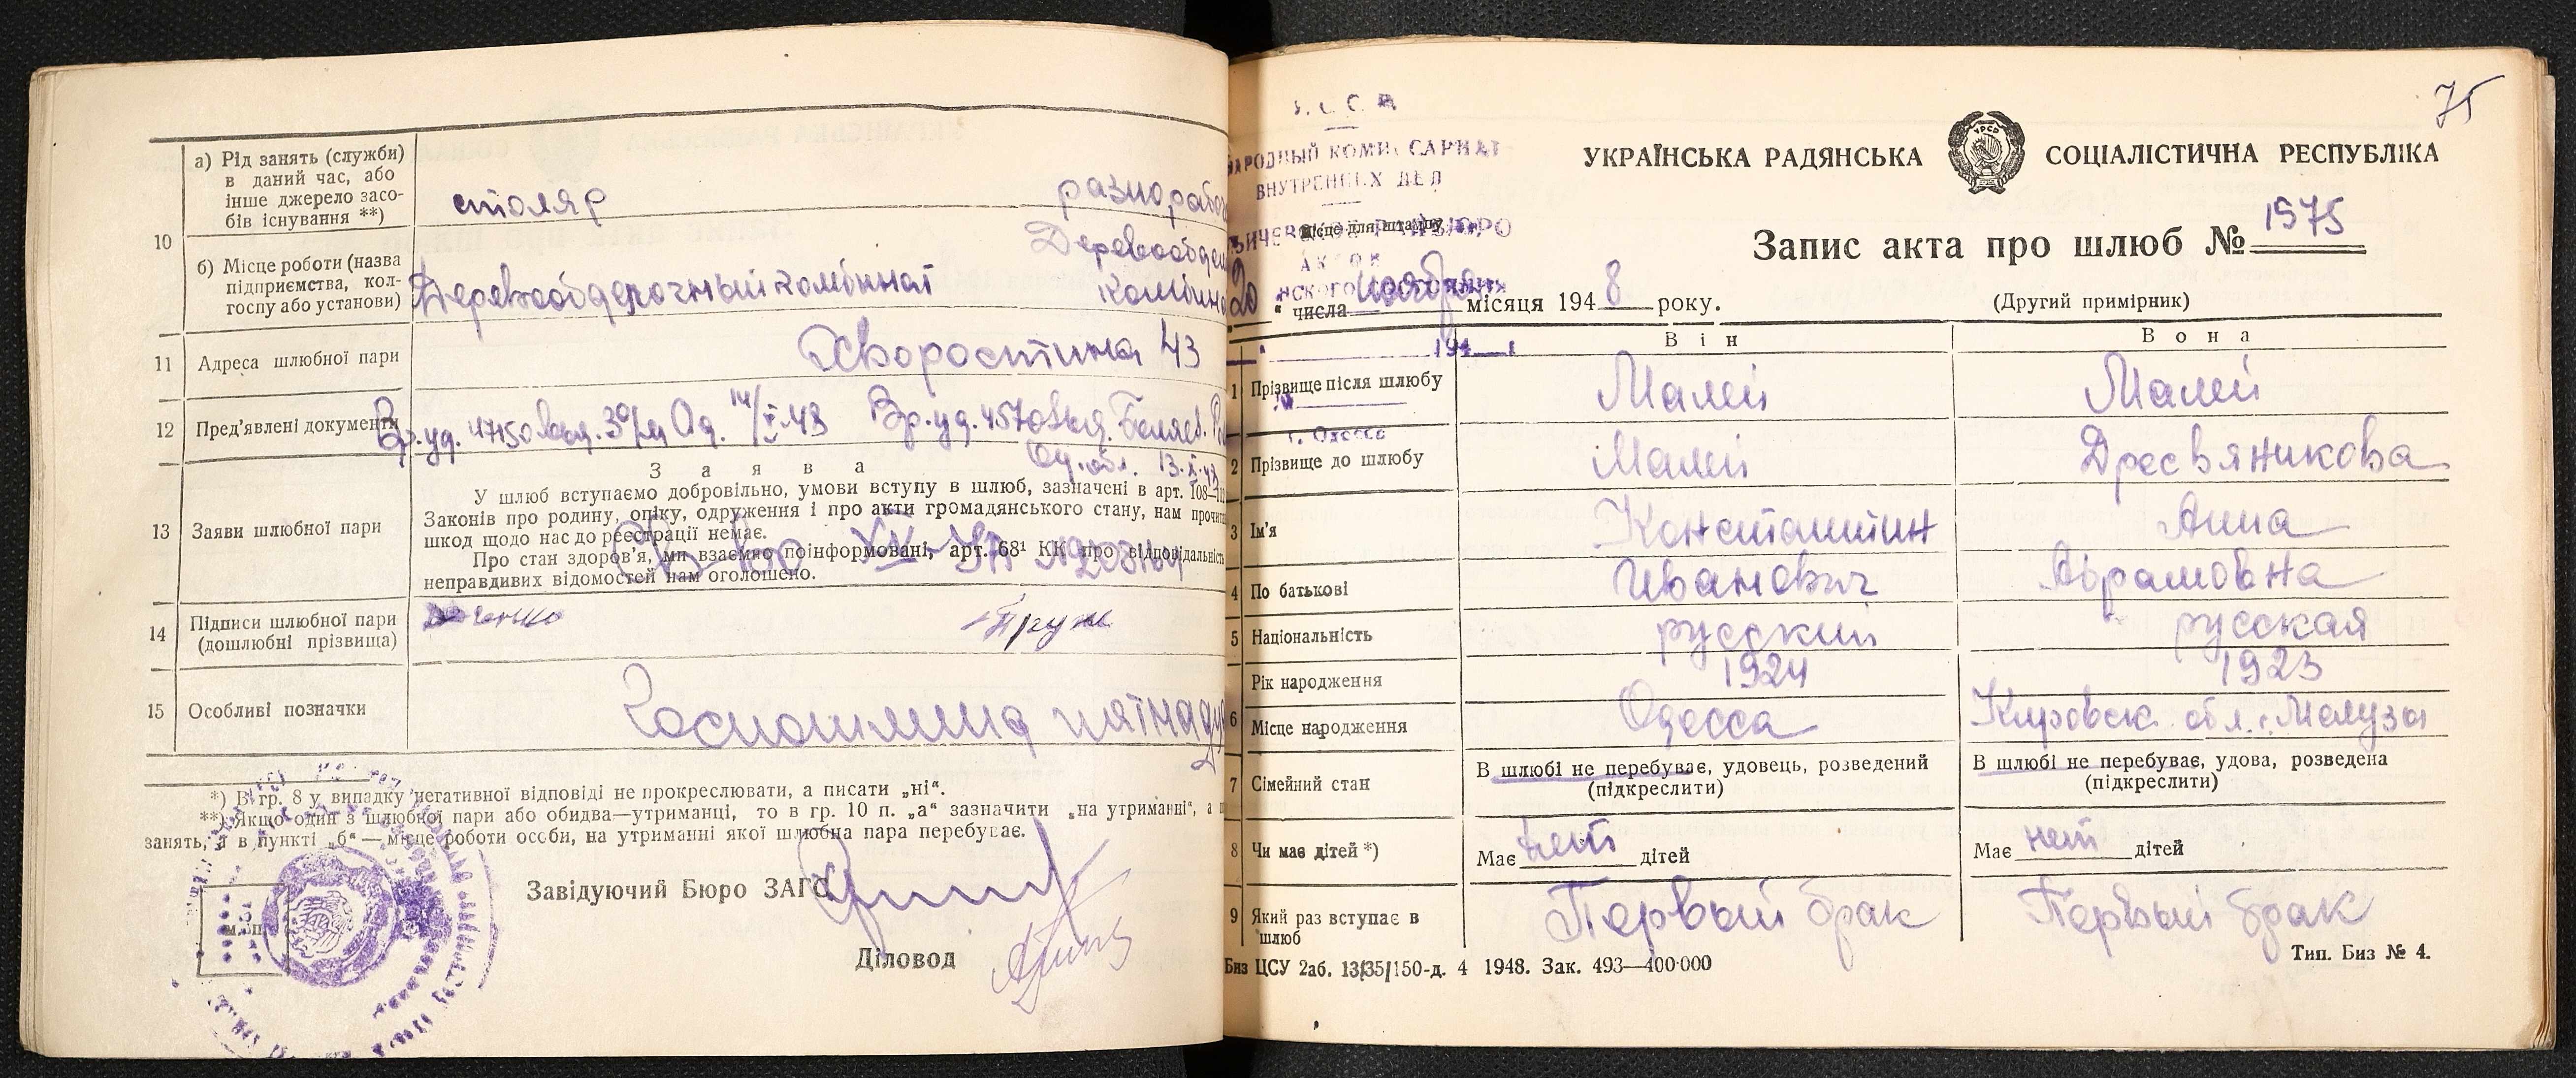 10
а) Рід занять (служби)
в даний час, або
інше джерело засо-
бів існування **)
столяр
разнорабоч
б) Місце роботи (назва
підприємства, кол-
госпу або установи)
Деревообделочный комбинат
Деревообдел
комбина
11 Адреса шлюбної пари
Хворостина 43
12 Пред'явлені документи
Вр. уд. 47150 выд. 3 о/м Од. 14/X 48 Вр. уд. 4570 выд. Беляев.
Од. обл. 13.X.48
13 Заяви шлюбної пари
Заява
У шлюб вступаємо добровільно, умови вступу в шлюб, зазначені в арт. 108—
Законів про родину, опіку, одруження і про акти громадянського стану, нам прочит
шкод щодо нас до реєстрації немає.
Про стан здоров'я, ми взаємно поінформовані, арт. 68¹ КК про відповідальність
неправдивих відомостей нам оголошено.
14 Підписи шлюбної пари
(дошлюбні прізвища)
15 Особливі позначки
Госпошлина пятнадц
*) В гр. 8 у випадку негативної відповіді не прокреслювати, а писати „ні“.
**) Якщо один з шлюбної пари або обидва—утриманці, то в гр. 10 п. „а“ зазначити „на утриманні“, а
занять, а в пункті „б“ — місце роботи особи, на утриманні якої шлюбна пара перебуває.
М. П.
Завідуючий Бюро ЗАГС
Діловод
75
У. С. С. Р.
НАРОДНЫЙ КОМИССАРИАТ
ВНУТРЕННИХ ДЕЛ
Місце для штампу
г. Одесса
УКРАЇНСЬКА РАДЯНСЬКА СОЦІАЛІСТИЧНА РЕСПУБЛІКА
Запис акта про шлюб № 1575
20 “ числа ноября місяця 1948 року.
(Другий примірник)
194
Він
Вона
1 Прізвище після шлюбу
Малей
Малей
2 Прізвище до шлюбу
Малей
Дресвяникова
3 Ім'я
Константин
Анна
4 По батькові
Иванович
Абрамовна
5 Національність
русский
русская
Рік народження
1924
1923
6 Місце народження
Одесса
Кировск. обл.
7 Сімейний стан
В шлюбі не перебуває, удовець, розведений
(підкреслити)
В шлюбі не перебуває, удова, розведена
(підкреслити)
8 Чи має дітей *)
Має нет дітей
Має нет дітей
9 Який раз вступає в
шлюб
Первый брак
Первый брак
Биз ЦСУ 2аб. 13/35/150-д. 4 1948. Зак. 493—400·000
Тип. Биз № 4.